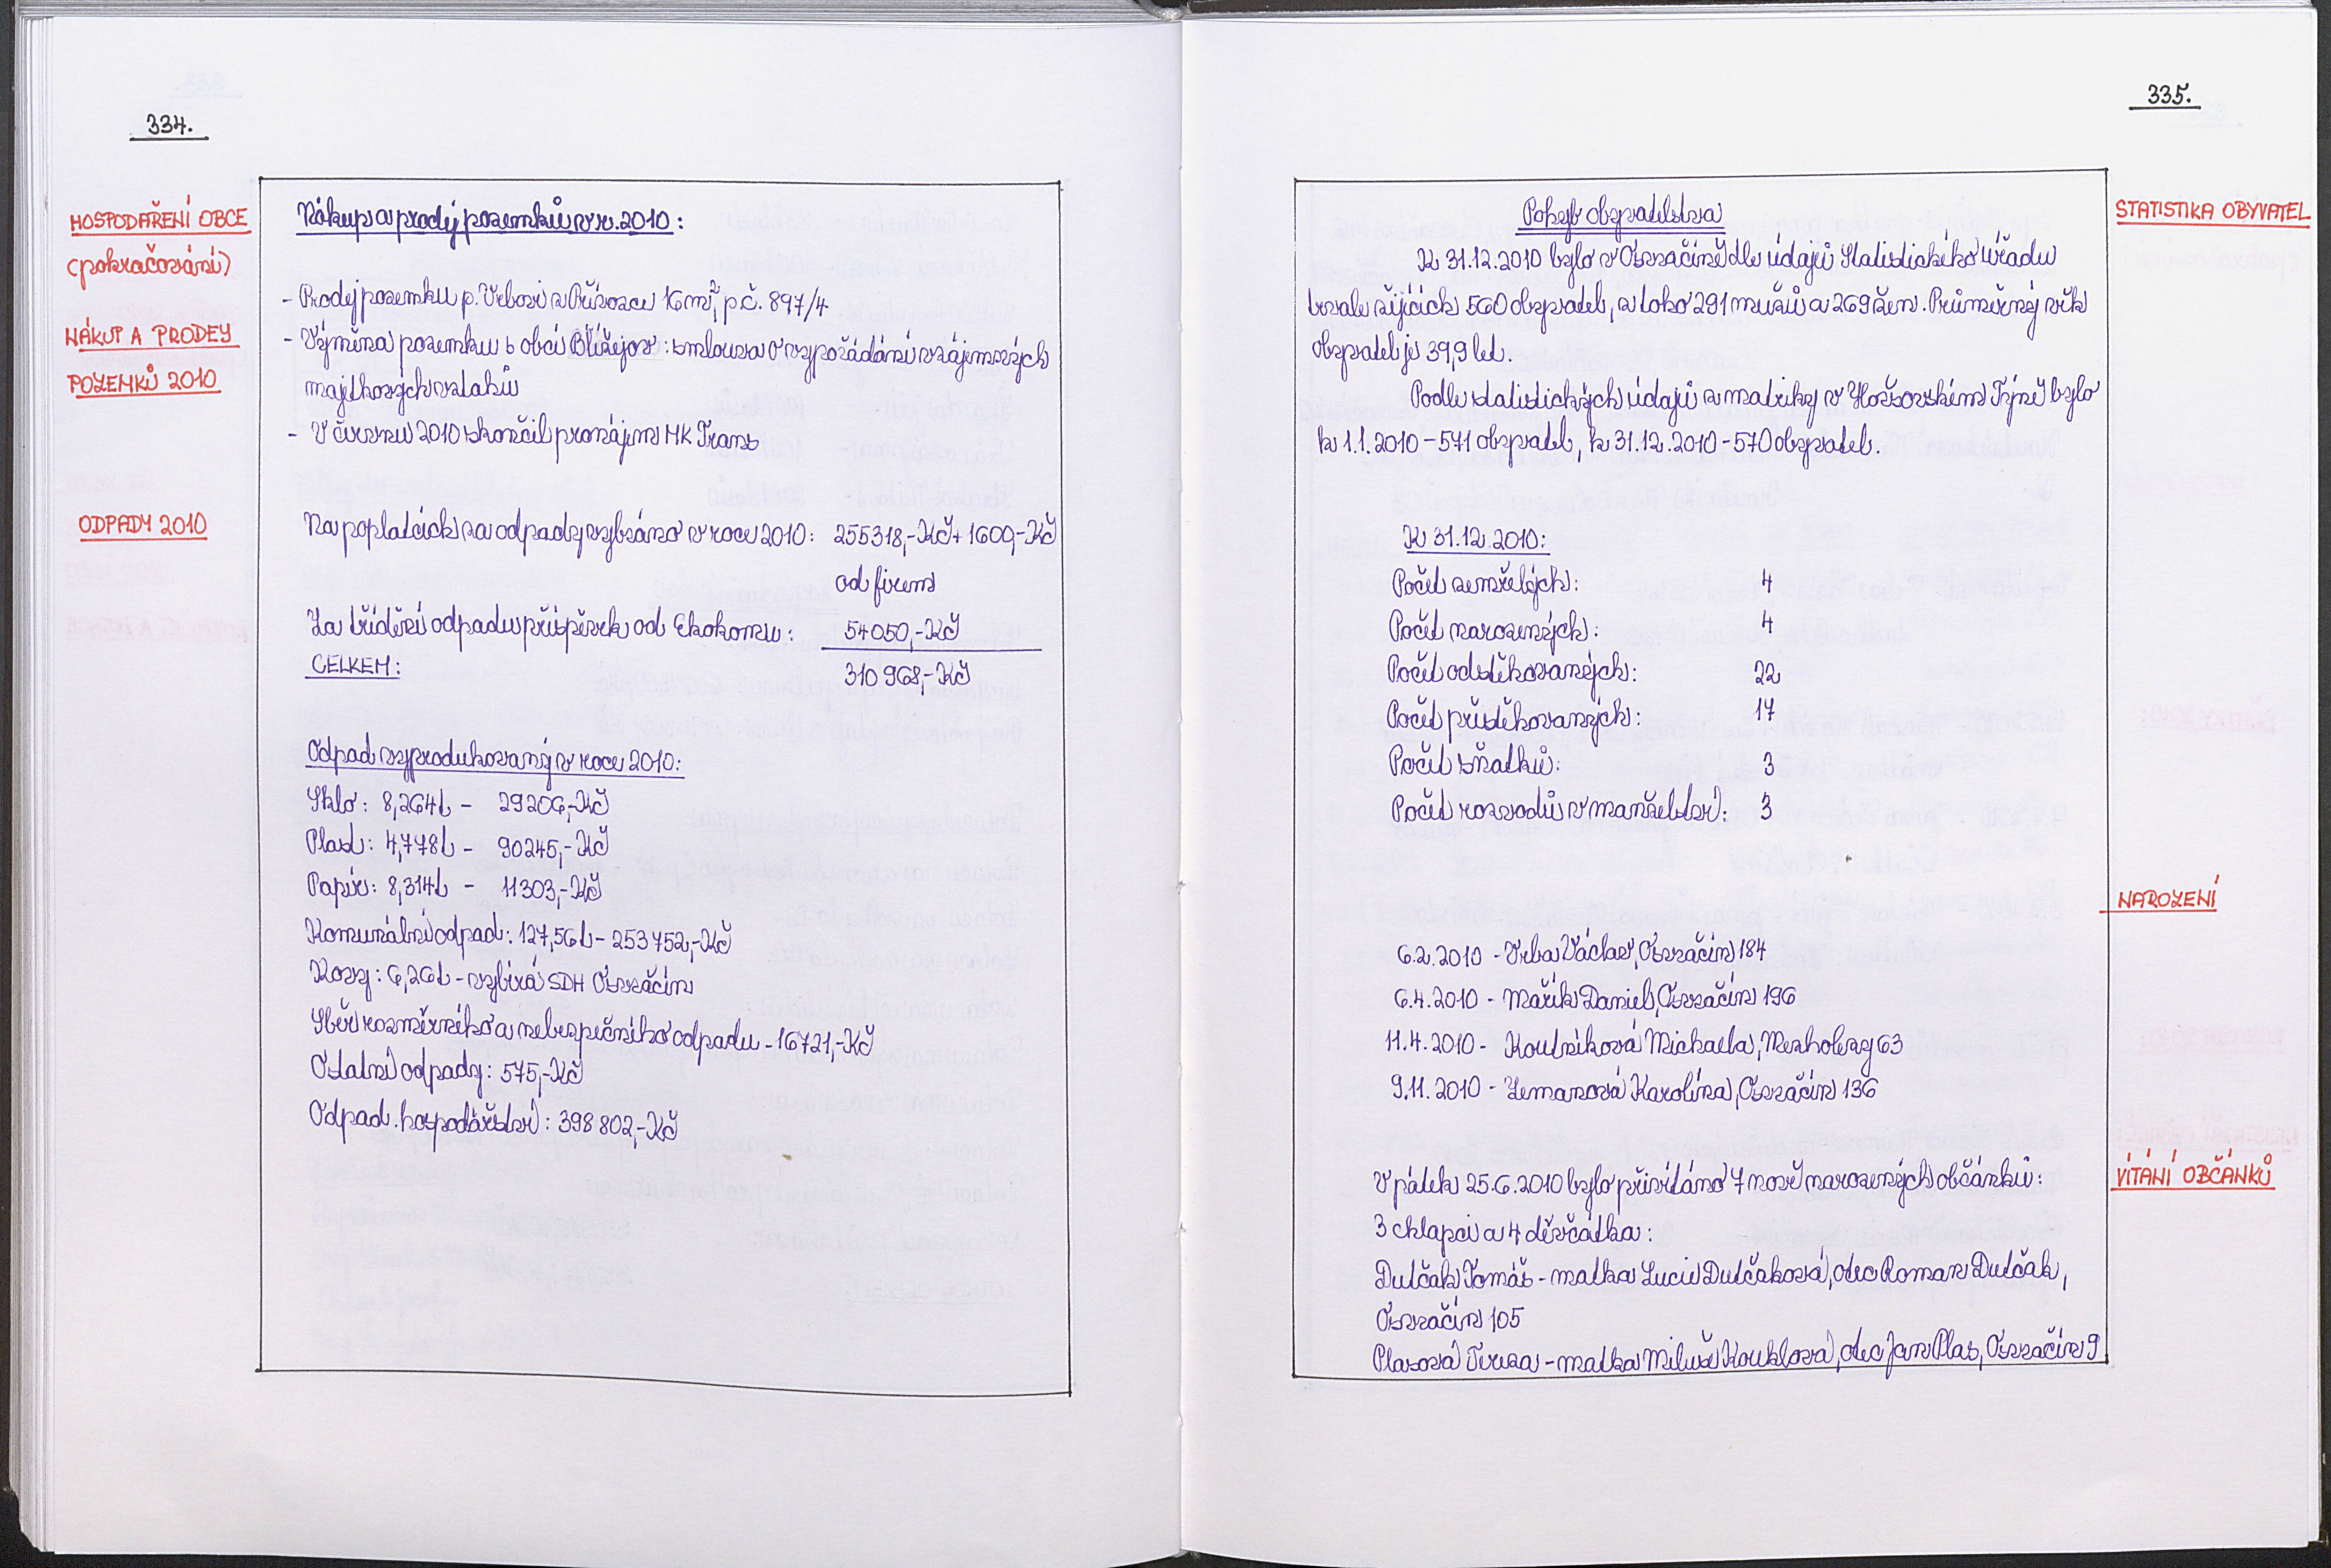 334.
HOSPODAŘENÍ OBCE
(pokračování)
NÁKUP A PRODEJ
POZEMKŮ 2010
ODPADY 2010
Nákup a prodej pozemků v r. 2010:
- Prodej pozemku p. Vrbovi z Přívozce 16 m², p.č. 897/4
- Výměna pozemku s obcí Blížejov: smlouva o vypořádání vzájemných
majetkových vztahů
- V červnu 2010 skončil pronájem MK Trans
Na poplatcích za odpady vybráno v roce 2010: 255318,-Kč + 1600,-Kč
od firem
Za třídění odpadu příspěvek od Ekokomu: 54050,-Kč
CELKEM: 310 968,-Kč
Odpad vyprodukovaný v roce 2010:
Sklo: 8,264t - 29206,-Kč
Plast: 4,778t - 90245,-Kč
Papír: 8,314t - 11303,-Kč
Komunální odpad: 127,56t - 253752,-Kč
Kovy: 6,26t - vybírá SDH Osvračín
Sběr rozměrného a nebezpečného odpadu - 16721,-Kč
Ostatní odpady: 575,-Kč
Odpad. hospodářství: 398 802,-Kč
335.
STATISTIKA OBYVATEL
NAROZENÍ
VÍTÁNÍ OBČÁNKŮ
Pohyb obyvatelstva
K 31.12.2010 bylo v Osvračíně dle údajů Statistického úřadu
trvale žijících 560 obyvatel, z toho 291 mužů a 269 žen. Průměrný věk
obyvatel je 39,9 let.
Podle statistických údajů z matriky v Horšovském Týně bylo
k 1.1.2010 - 571 obyvatel, k 31.12.2010 - 570 obyvatel.
K 31.12.2010:
Počet zemřelých: 4
Počet narozených: 4
Počet odstěhovaných: 22
Počet přistěhovaných: 17
Počet sňatků: 3
Počet rozvodů v manželství: 3
6.2.2010 - Vrba Václav, Osvračín 184
6.4.2010 - Mařík Daniel, Osvračín 196
11.4.2010 - Koutníková Michaela, Mezholezy 63
9.11.2010 - Zemanová Karolína, Osvračín 136
V pátek 25.6.2010 bylo přivítáno 7 nově narozených občánků:
3 chlapci a 4 děvčátka:
Dutčak Tomáš - matka Lucie Dutčaková, otec Roman Dutčak,
Osvračín 105
Plasová Tereza - matka Miluše Kouklová, otec Jan Plas, Osvračín 9